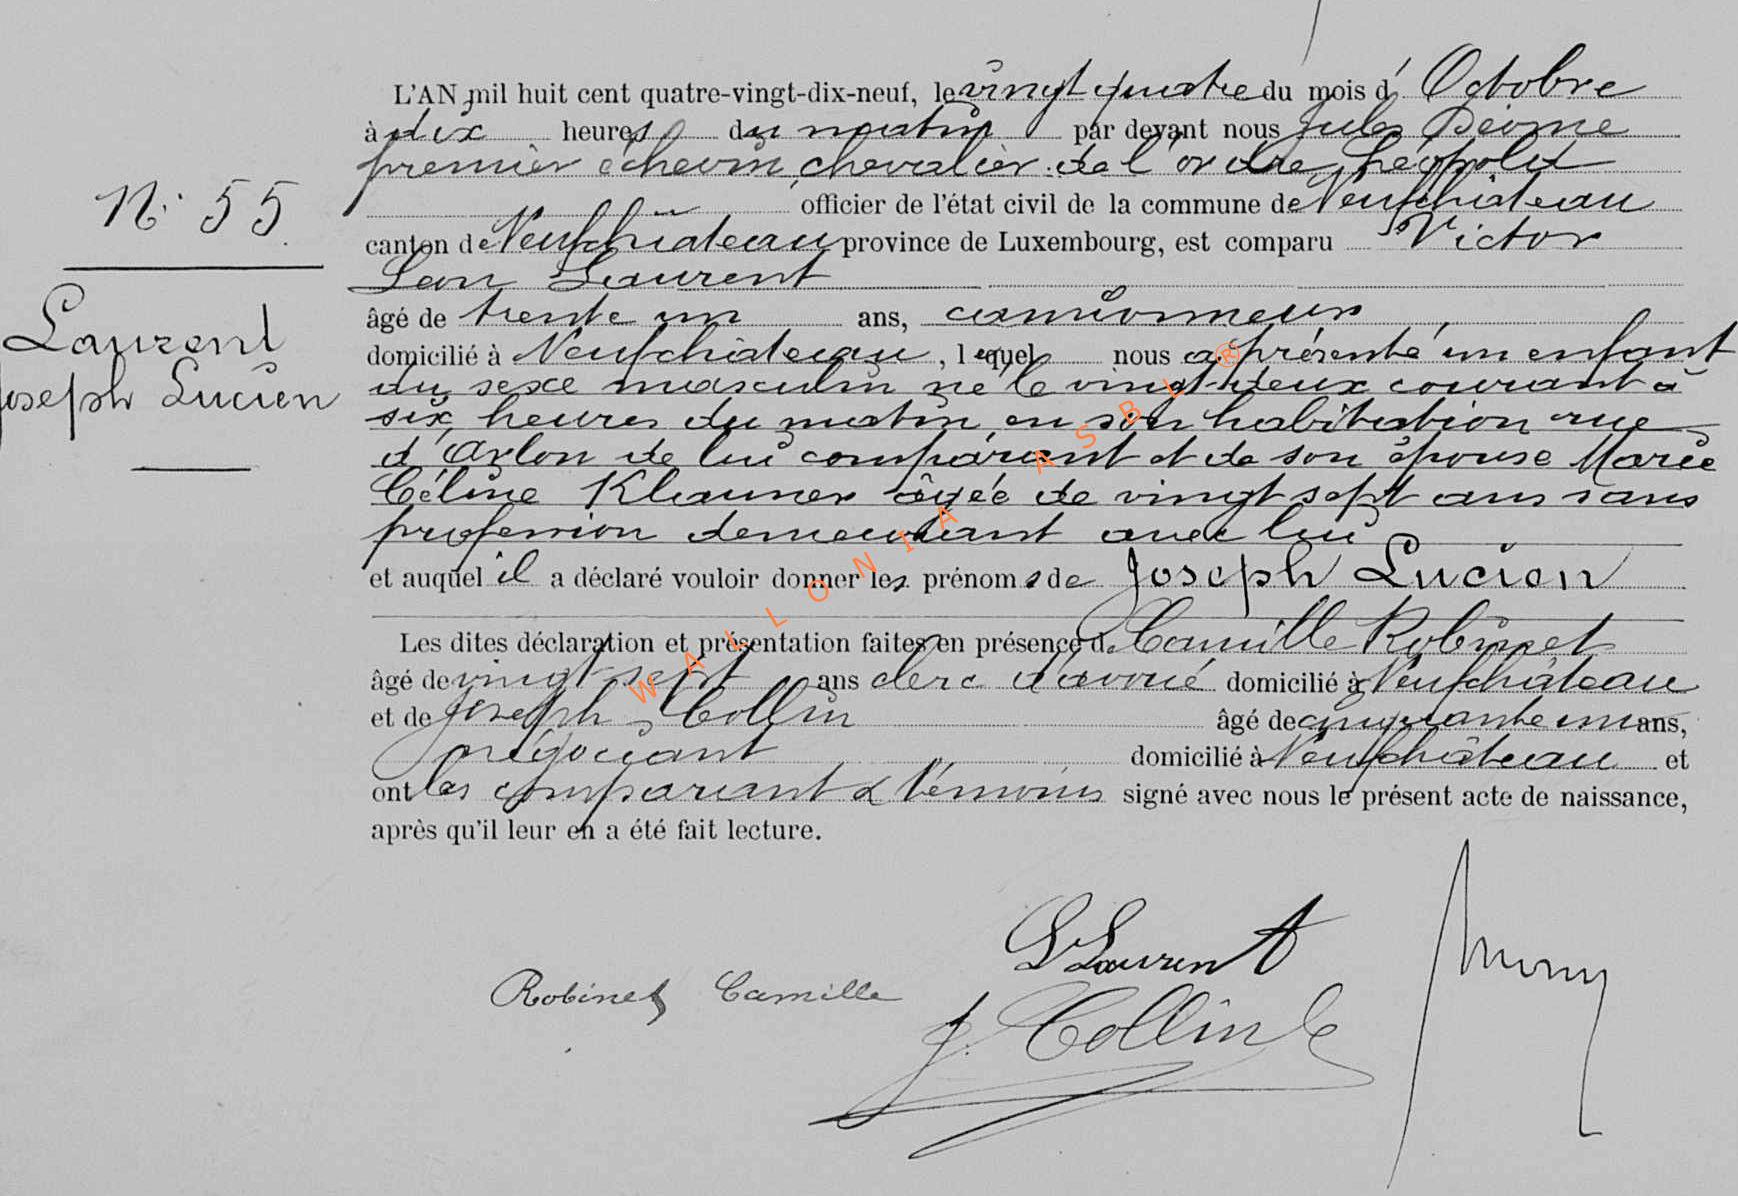 L'AN mil huit cent quatre-vingt-dix-neuf, le vingt quatre du mois d' Octobre
à dix heures du matin par devant nous Jules
premier échevin, chevalier de l'ordre Léopold
officier de l'état civil de la commune de Neufchâteau
N° 55
canton de Neufchâteau province de Luxembourg, est comparu Victor
Léon Laurent
âgé de trente un ans, camionneur
Laurent
Joseph Lucien
domicilié à Neufchâteau, lequel nous a présenté un enfant
du sexe masculin né le vingt-deux courant à
six heures du matin, en son habitation rue
d'Arlon de lui comparant et de son épouse Marie
Céline Klauner âgée de vingt sept ans sans
profession demeurant avec lui
et auquel il a déclaré vouloir donner les prénoms de Joseph Lucien
Les dites déclaration et présentation faites en présence de Camille Robinet
âgé de vingt sept ans clerc d'avoué domicilié à Neufchâteau
et de Joseph Collin âgé de cinquante un ans,
négociant domicilié à Neufchâteau et
ont les comparant & témoins signé avec nous le présent acte de naissance,
après qu'il leur en a été fait lecture.
L Laurent
Robinet Camille
J. Collin
WALLONIA ASBL ®